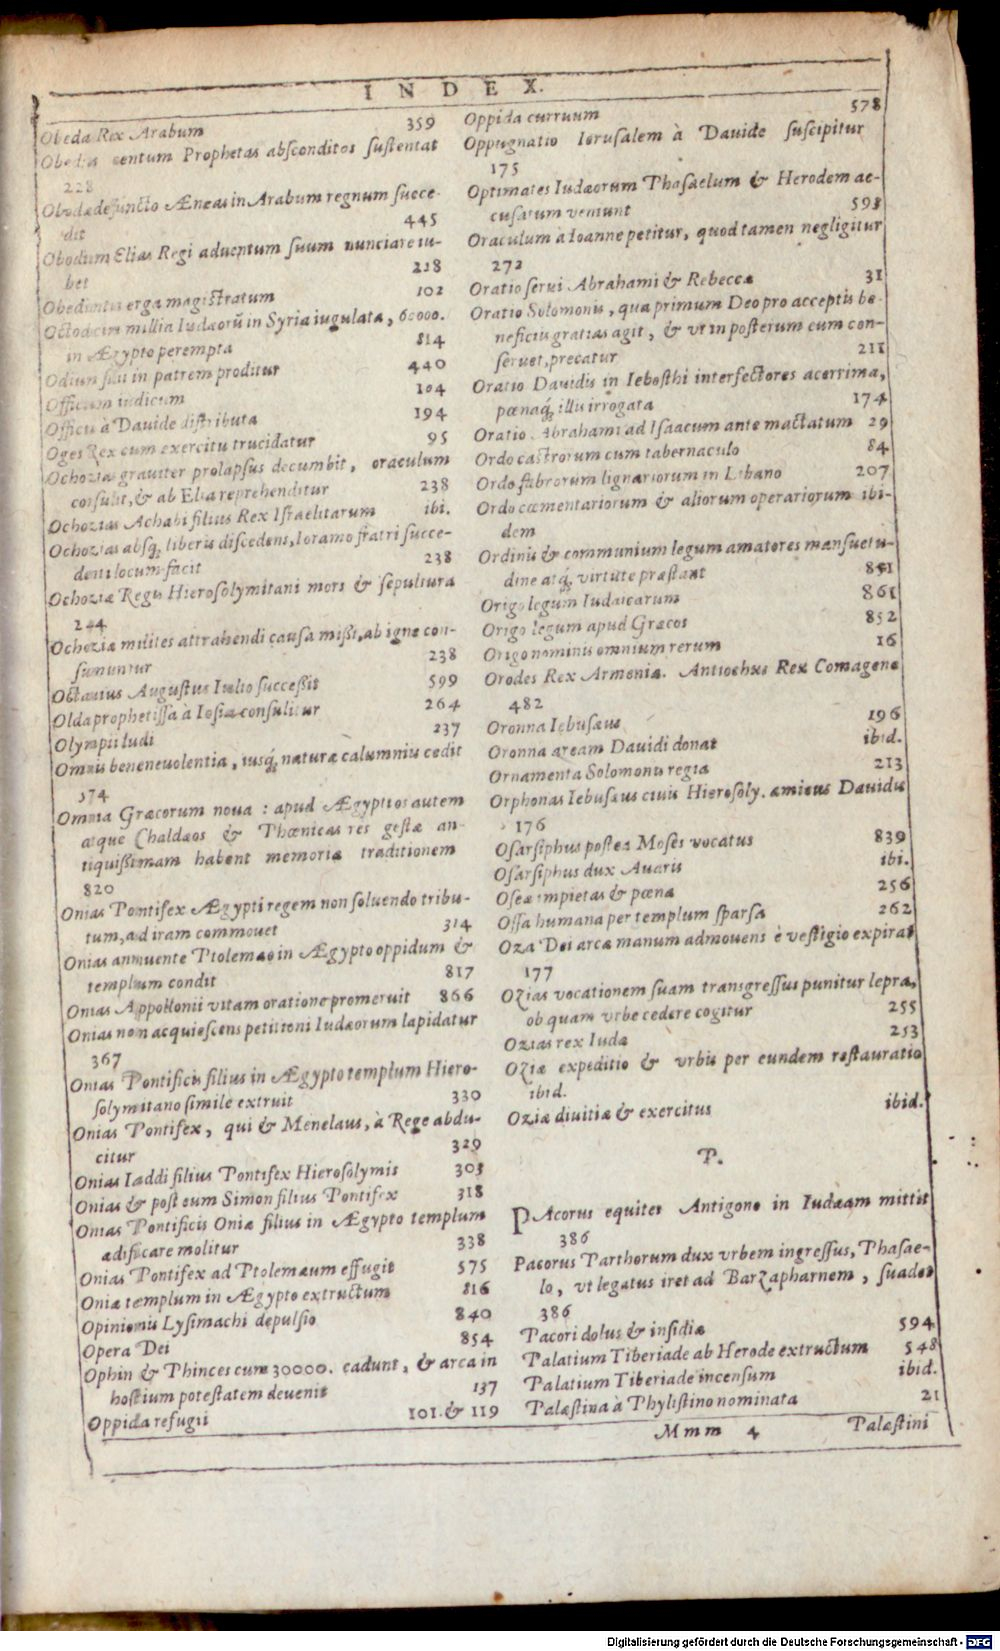 INDEX.
Obeda Rex Arabum 359
Obedias centum Prophetas absconditos sustentat
228
Obodæ defuncto Æneas in Arabum regnum succe-
dit 445
Obodum Elias Regi aduentum suum nunciare iu-
bet 218
Obedientis erga magistratum 102
Octodecim millia Iudæorũ in Syria iugulata, 60000.
in Ægypto perempta 814
Odium filii in patrem proditur 440
Officium iudicum 104
Officia à Dauide distributa 194
Oges Rex cum exercitu trucidatur 95
Ochozias grauiter prolapsus decumbit, oraculum
consulit, & ab Elia reprehenditur 238
Ochozias Achabi filius Rex Israelitarum ibi.
Ochozias absq; liberis discedens, Ioramo fratri succe-
denti locum facit 238
Ochoziæ Regis Hierosolymitani mors & sepultura
244
Ochoziæ milites attrahendi causa missi, ab igne con-
sumuntur 238
Octauius Augustus Iulio successit 599
Olda prophetissa à Iosia consulitur 264
Olympii ludi 237
Omnis beneneuolentia, iusq; naturæ calumniis cedit
574
Omnia Græcorum noua : apud Ægyptios autem
atque Chaldæos & Phœnicas res gestæ an-
tiquissimam habent memoriæ traditionem
820
Onias Pontifex Ægypti regem non soluendo tribu-
tum, ad iram commouet 314
Onias annuente Ptolemæo in Ægypto oppidum &
templum condit 817
Onias Appollonii vitam oratione promeruit 866
Onias non acquiescens petitioni Iudæorum lapidatur
367
Onias Pontificis filius in Ægypto templum Hiero-
solymitano simile extruit 330
Onias Pontifex, qui & Menelaus, à Rege abdu-
citur 329
Onias Iaddi filius Pontifex Hierosolymis 303
Onias & post eum Simon filius Pontifex 318
Onias Pontificis Oniæ filius in Ægypto templum
ædificare molitur 338
Onias Pontifex ad Ptolemæum effugit 575
Oniæ templum in Ægypto extructum 816
Opinionis Lysimachi depulsio 840
Opera Dei 854
Ophin & Phinces cum 30000. cadunt, & arca in
hostium potestatem deuenit 137
Oppida refugii 101. & 119
Oppida curruum 578
Oppugnatio Ierusalem à Dauide suscipitur
175
Optimates Iudæorum Phasaelum & Herodem ac-
cusatum veniunt 598
Oraculum a Ioanne petitur, quod tamen negligitur
272
Oratio serui Abrahami & Rebeccæ 31
Oratio Solomonis, qua primum Deo pro acceptis be-
neficiis gratias agit, & vt in posterum eum con-
seruet, precatur 211
Oratio Dauidis in Iebosthi interfectores acerrima,
pœnaq; illis irrogata 174
Oratio Abrahami ad Isaacum ante mactatum 29
Ordo castrorum cum tabernaculo 84
Ordo fabrorum lignariorum in Libano 207
Ordo cæmentariorum & aliorum operariorum ibi-
dem
Ordinis & communium legum amatores mansuetu-
dine atq; virtute præstant 851
Origo legum Iudaicarum 861
Origo legum apud Græcos 852
Origo nominis omnium rerum 16
Orodes Rex Armeniæ. Antiochus Rex Comagenæ
482
Oronna Iebusæus 196
Oronna aream Dauidi donat ibid.
Ornamenta Solomonis regia 213
Orphonas Iebusæus ciuis Hierosoly. amicus Dauidis
176
Osarsiphus postea Moses vocatus 839
Osarsiphus dux Auaris ibi.
Oseæ impietas & pœna 256
Ossa humana per templum sparsa 262
Oza Dei arcæ manum admouens è vestigio expirat
177
Ozias vocationem suam transgressus punitur lepra,
ob quam vrbe cedere cogitur 255
Ozias rex Iuda 253
Oziæ expeditio & vrbis per eundem restauratio
ibid.
Oziæ diuitiæ & exercitus ibid.
P.
PAcorus equites Antigono in Iudæam mittit
386
Pacorus Parthorum dux vrbem ingressus, Phasae-
lo, vt legatus iret ad Barzapharnem, suadet
386
Pacori dolus & insidiæ 594
Palatium Tiberiade ab Herode extructum 548
Palatium Tiberiade incensum ibid.
Palæstina à Phylistino nominata 21
Mmm 4 Palæstini
Digitalisierung gefördert durch die Deutsche Forschungsgemeinschaft - DFG